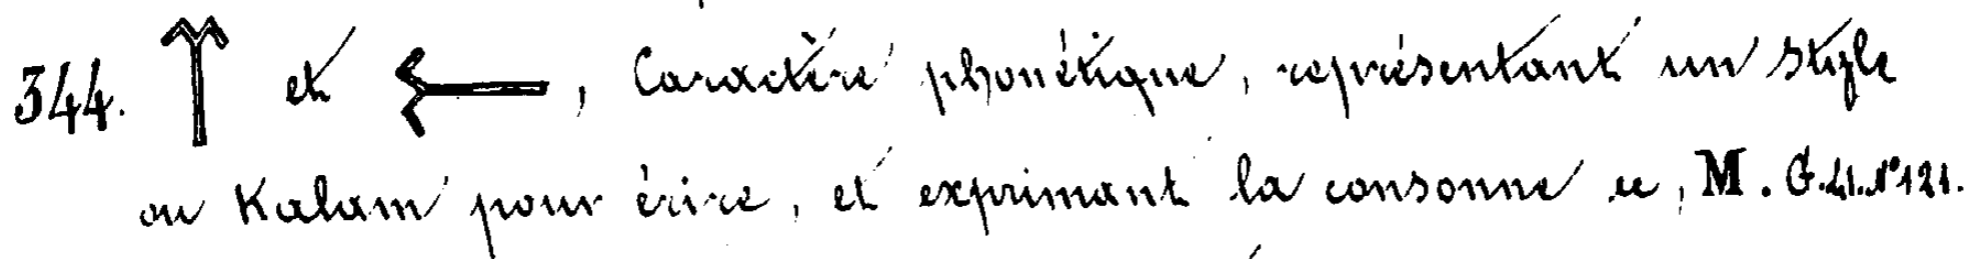 344. et , Caractère phonétique, représentant un style
ou Kalam pour écrire, et exprimant la consonne ⲙ, M. N° 121.